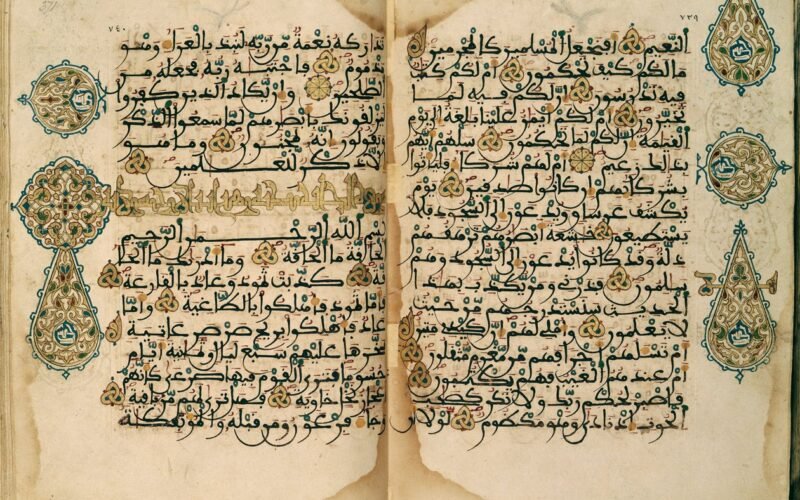 ٧٣٩
النعيم أفنجعل المسلمين كالمجرمين
ما لكم كيف تحكمون أم لكم كتب
فيه تدرسون إن لكم فيه لما
تخيرون أم لكم أيمن علينا بلغة إلى يوم
القيمة إن لكم لما تحكمون سلهم أيهم
بذلك زعيم أم لهم شركاء فليأتوا
بشركائهم إن كانوا صدقين يوم
يكشف عن ساق ويدعون إلى السجود فلا
يستطيعون خشعة أبصرهم ترهقهم
ذلة وقد كانوا يدعون إلى السجود وهم
سلمون فذرني ومن يكذب بهذا
الحديث سنستدرجهم من حيث
لا يعلمون وأملي لهم إن كيدي متين
أم تسئلهم أجرا فهم من مغرم مثقلون
أم عندهم الغيب فهم يكتبون
فاصبر لحكم ربك ولا تكن كصاحب
الحوت إذ نادى وهو مكظوم لولا أن
٧٤٠
تداركه نعمة من ربه لنبذ بالعراء وهو
مذموم فاجتبه ربه فجعله من
الصلحين وإن يكاد الذين كفروا
ليزلقونك بأبصرهم لما سمعوا الذكر
ويقولون إنه لمجنون وما هو
إلا ذكر للعلمين
بسم الله الرحمن الرحيم
الحاقة ما الحاقة وما أدريك ما الحا
قة كذبت ثمود وعاد بالقارعة
فأما ثمود فأهلكوا بالطاغية وأما
عاد فأهلكوا بريح صرصر عاتية
سخرها عليهم سبع ليال وثمنية أيام
حسوما فترى القوم فيها صرعى كأنهم
أعجاز نخل خاوية فهل ترى لهم من باقية
وجاء فرعون ومن قبله والمؤتفكت